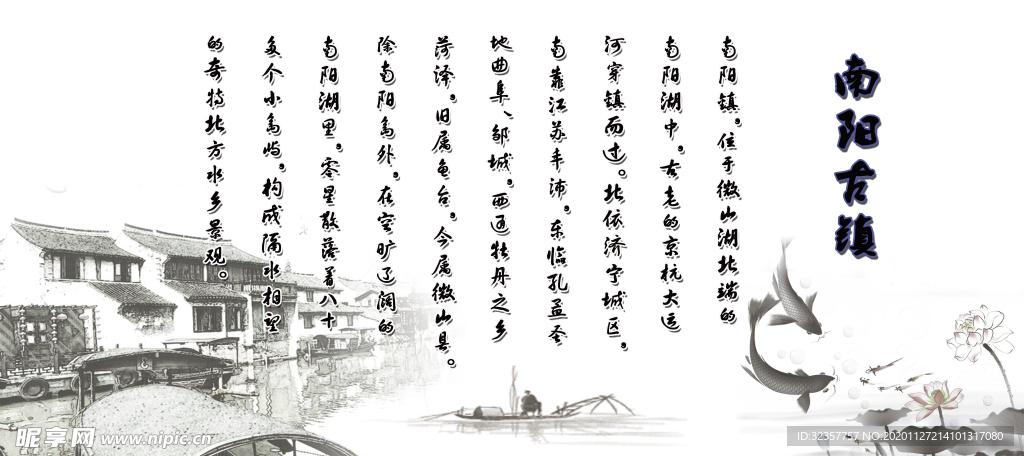 南阳古镇
南阳镇，位于微山湖北端的
南阳湖中，古老的京杭大运
河穿镇而过。北依济宁城区，
南靠江苏丰沛，东临孔孟圣
地曲阜、邹城，西通牡丹之乡
菏泽。旧属鱼台，今属微山县。
除南阳岛外，在空旷辽阔的
南阳湖里，零星散落着八十
多个小岛屿，构成隔水相望
的奇特北方水乡景观。
昵享网 www.nipic.cn
ID:32357757 NO:20201127214101317080